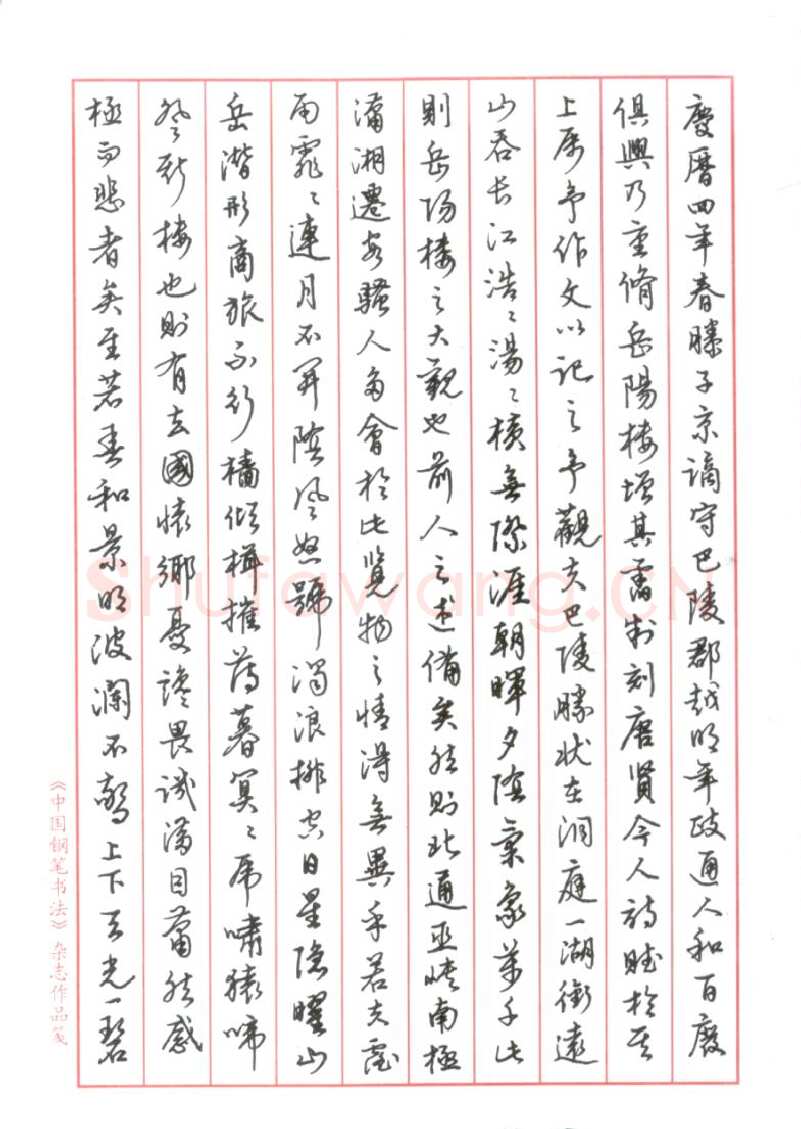 慶曆四年春滕子京謫守巴陵郡越明年政通人和百廢
俱興乃重脩岳陽樓增其舊制刻唐賢今人詩賦於其
上属予作文以记之予觀夫巴陵勝状在洞庭一湖銜遠
山吞长江浩〻湯〻横無際涯朝暉夕陰氣象萬千此
則岳陽樓之大觀也前人之述備矣然則北通巫峡南極
瀟湘遷客騷人多會於此覽物之情得無異乎若夫霪
雨霏〻連月不開陰風怒號濁浪排空日星隐曜山
岳潛形商旅不行檣傾楫摧薄暮冥〻虎嘯猿啼
登斯樓也則有去國懷鄉憂讒畏譏滿目蕭然感
極而悲者矣至若春和景明波瀾不驚上下天光一碧
《中国钢笔书法》杂志作品笺
Shufawang.CN